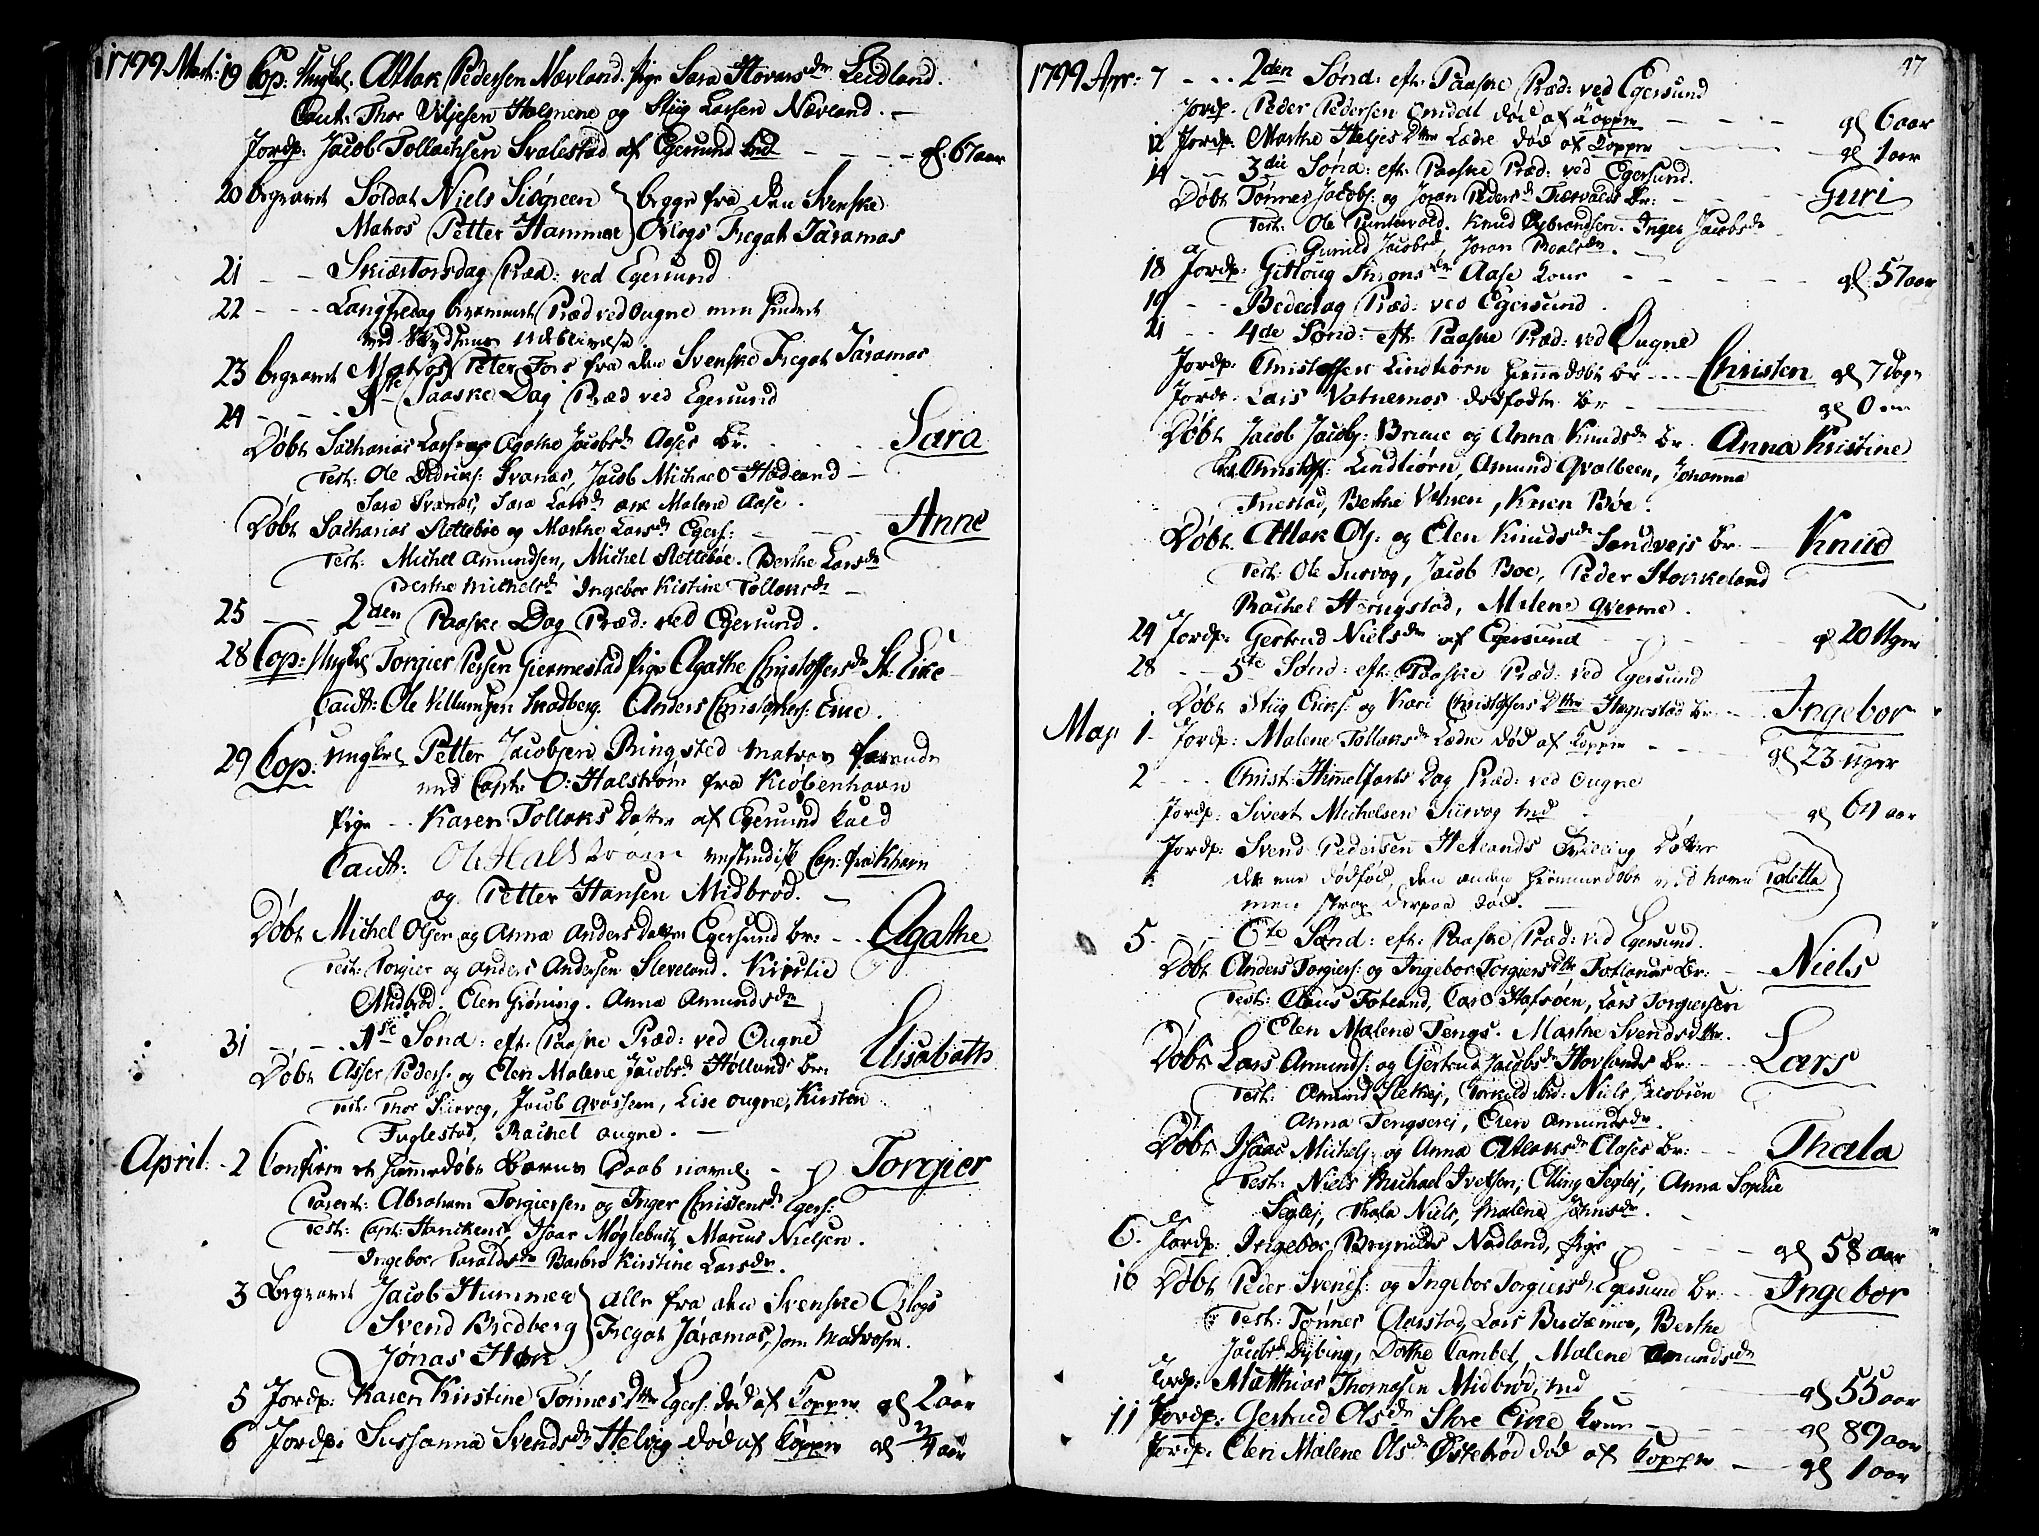 1799 Mart: 19 Cop: Ungkel. Atlak Pedersen Nævland. Pige Sara Hovars dtr Leidland.
Caut: Thor Viljesen Holmene og Stiig Larsen Nævland.
Jordp: Jacob Tollachsen Svalestad af Egersund Md gl. 67 aar
20 begravet Soldat Niels Siögreen } begge fra den Svenske
Matros Petter Hammar } Orlogs Fregat Järamas
21 - - Skiærtorsdag Præd: ved Egersund
22 - - - Langfredag berammet Præd ved Ougne men hindret
ved Skydsens udeblivelse.
23 begravet Matros Peter Fors fra den Svenske Fregat Järamas
24 - - - 1ste Paaske Dag Præd ved Egersund
Döbt Sacharias Lars: og Agathe Jacobs dr Aases Br. Sara
Test: Ole Didriks: Svanæs, Jacob Michael Hadeland
Sara Svanæs, Sara Lars dr Malene Aase.
Döbt Sacharias Sletteböe og Marthe Lars dr Egers: Anne
Test: Michel Amundsen, Michel Slettebøe. Berthe Lars dr
Berthe Michels dr Ingebor Kistine Tollaks dr
25 - - 2den Paaske Dag Præd: ved Egersund.
28 Cop: Ungkel Torgier Persen Giermestad Pige Agathe Christoffers dr St: Eike
Caut: Ole Villumsen Skadberg. Anders Christophers: Eike.
29 Cop: Ungkel Petter Jacobsen Ringsted Matros farende
med Capt: O: Halström fra Kiöbenhavn
Pige - Karen Tollaks Datter af Egersund
Caut: Ole Halström vestindisk Cap: fra Khavn
og Petter Hansen Midbröd.
Döbt Michel Olsen og Anna Anders Datter Egersund Br: Agathe
Test: Torgier og Anders Andersen Sleveland. Kirstie
Midbröd. Elen Gröning. Anna Amunds dr
31 - - 1ste Sönd: eft: Paaske Præd: ved Ougne
Döbt Asser Peders: og Elen Malene Jacobs dr Höllands Br: Elisabath
Test: Thor Siirvog, Jacob Qvassem, Lise Ougne, Kirsten
Fuglestad, Rachel Ougne.
April: 2 Confirm et hiemmedöbt Barns Daab navnl: Torgier
Parent: Abraham Torgiersen og Inger Christens dr Egers:
Test: Capt: Stenckens, Isaac Møglebust, Marcus Nielsen.
Ingebor Taralds dr Barbro Kirstine Lars dr.
3 Begravet Jacob Hummer } alle fra den Svenske Orlogs
Svend Bredberg } Fregat Järamas, som Matroser.
Jönas Hök
5 Jordp: Karen Kirstine Tönnes Dtr Egers: död af Kopper gl 2 aar
6 Jordp: Sussanna Svends dr Helvig död af Kopper gl 2/4 aar
47
1799 Apr: 7 - - 2den Sönd: eft: Paaske Præd: ved Egersund
Jordp. Peder Pedersen Omdal död af Kopper gl 6 aar
12 Jordp: Marthe Heljes Dtter Lædre död af Kopper gl 1 aar
14 - - 3die Sönd: eft: Paaske Præd: ved Egersund.
Döbt Tönnes Jacobs: og Joran Peders dr Br: Guri
Test: Ole Puntervold. Knud Gybrandsen. Inger Jacobs dr
Gunild Jacobs d, Joran Roals dr
18 Jordp: Gitloug Simons dr Aase Kone gl. 57 aar
19 - - Bededag Præd: ved Egersund.
21 - - 4de Sönd: eft: Paaske Præd: ved Ougne
Jordp: Christoffers Lindtiörn hiemmedöbt Br Christen gl 7 Dage
Jordp. Lars Vatnemos dodfodte Br gl 0
Döbt Jacob Jacobs: Bruue og Anna Knuds dr Br. Anna Kristine
Test: Christoff: Lindtiörn, Amund Qvalbeen, Johanna
Friestad, Berthe Vatnen, Karen Böe.
Döbt Atlak Ols: og Elen Knuds dr Sandvejs Br. Knud
Test: Ole Tusvog, Jacob Boe, Peder Stokkeland
Rachel Höngstad, Malene Qverme.
24 Jordp: Gertrud Niels dr af Egersund gl 20 Uger
28 - - 5te Sönd: eft: Paaske Præd: ved Egersund
Döbt Stiig Eriks: og Kari Christoffers Dtter Hegrestad Br: Ingebor
Maj 1 Jordp: Malene Tollaks dr Lædre död af Kopper gl 23 uger
2 - - - Christ: Himmelfarts Dag Præd: ved Ougne
Jordp: Sivert Michelsen Siirvog Md gl 64 aar
Jordp: Svend Pedersen Hetlands Tvilling Dötre
den ene dödföd, den anden hiemmedöbt ved Navn Taletta
men strax derpaa död.
5 - - 6te Sönd: eft: Paaske Præd: ved Egersund.
Döbt Anders Torgiers: og Ingebor Torgiers dtr Totlands Br: Niels
Test: Claus Totland, Carl Hafsöen, Lars Torgiersen
Elen Malene Tengs. Marthe Svends dtr.
Döbt Lars Amunds: og Gertrud Jacobs dr Hovlands Br: Lars
Test: Amund Sletthej, Torkild ibid: Niels Jacobsen
Anna Tengsarej, Elen Amunds dr.
Döbt Isaac Michels: og Anna Atlaks dr Br: Thala
Test: Niels Michael Ivetsen, Elling Seglej, Anna Sophie
Seglej, Thala Niels, Malene Johns dr.
6. Jordp: Ingebor Brynilds Nodland, Pige gl 58 aar
10 Döbt Peder Svends: og Ingebor Torgiers d Egersund Br: Ingebor
Test: Tönnes Aarstad, Lars Berthe
Jacobs d Dybing, Dorthe Cambel, Malene Amunds dr
Jordp: Matthias Thomasen Midbröd, Md gl 55 aar
11 Jordp: Gertrud Ols dr Store Eike Kone gl 89 aar
Jordp: Elen Malene Ols dr Östebröd död af Kopper gl 1 aar